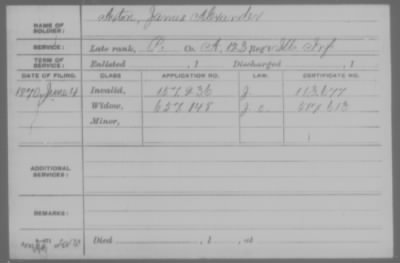 NAME OF SOLDIER: Aston, James Alexander
SERVICE: Late rank, P. Co. A, 123 Regt Ill. Inf
TERM OF SERVICE: Enlisted , 1 Discharged , 1
DATE OF FILING. CLASS APPLICATION NO. LAW. CERTIFICATE NO.
1870, June 4 Invalid, 157.936 113.677
Widow, 657.148 587.613
Minor,
ADDITIONAL SERVICES:
REMARKS:
Died , 1 , at